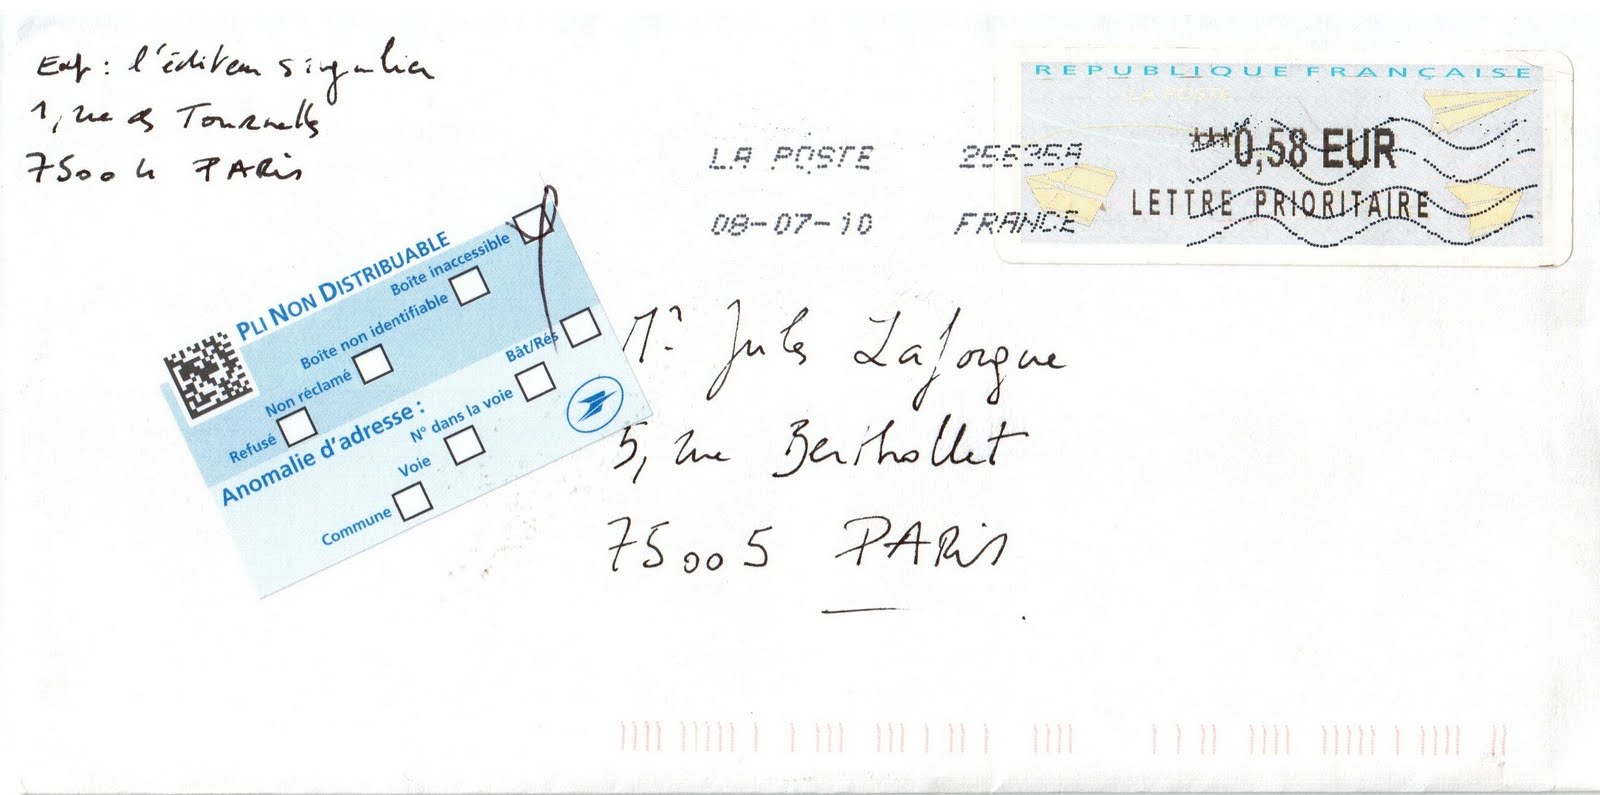 Exp : l'éditeur singulier
1, rue des Tournelles
75004 PARIS
REPUBLIQUE FRANÇAISE
LA POSTE
***0,58 EUR
LETTRE PRIORITAIRE
LA POSTE 25635A
08-07-10 FRANCE
PLI NON DISTRIBUABLE
Boîte inaccessible
Boîte non identifiable
Non réclamé
Refusé
Anomalie d'adresse :
Bât/Rés
N° dans la voie
Voie
Commune
Mr Jules Laforgue
5, rue Berthollet
75005 PARIS